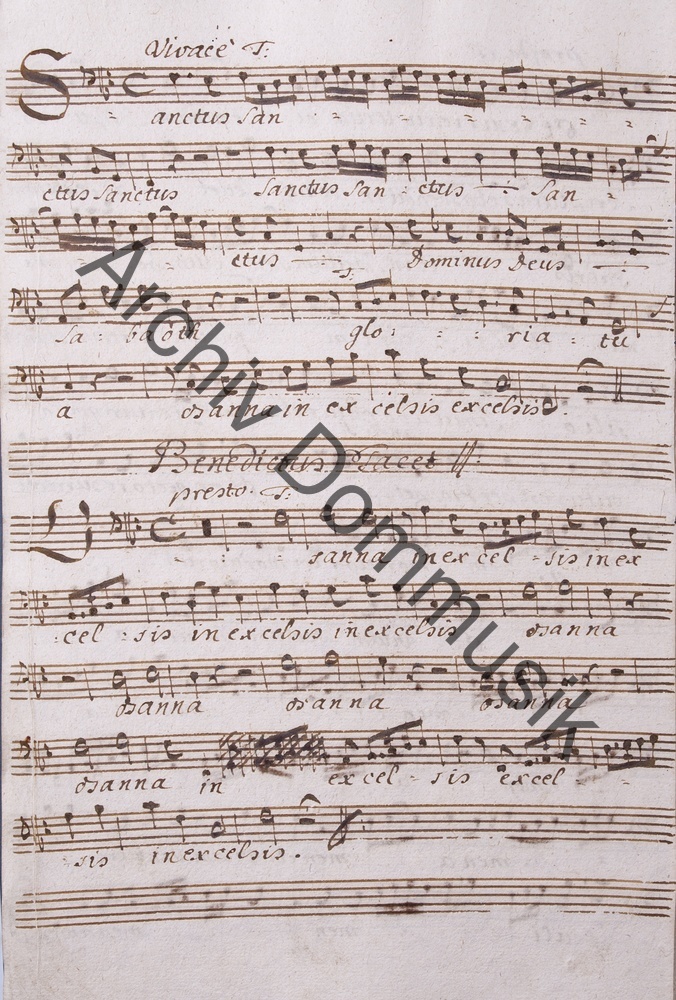 Vivacè T:
Sanctus San
ctus Sanctus Sanctus San - ctus San
ctus Dominus Deus
T:
Sa - ba oth glo: ria - tu
a osanna in ex celsis excelsis.
Benedictus Tacet
presto. T:
O sanna in ex cel - sis in ex
:cel - sis in excelsis in excelsis osanna
osanna osanna osanna
osanna in ex cel - sis excel -
sis in excelsis.
Archiv Dommusik